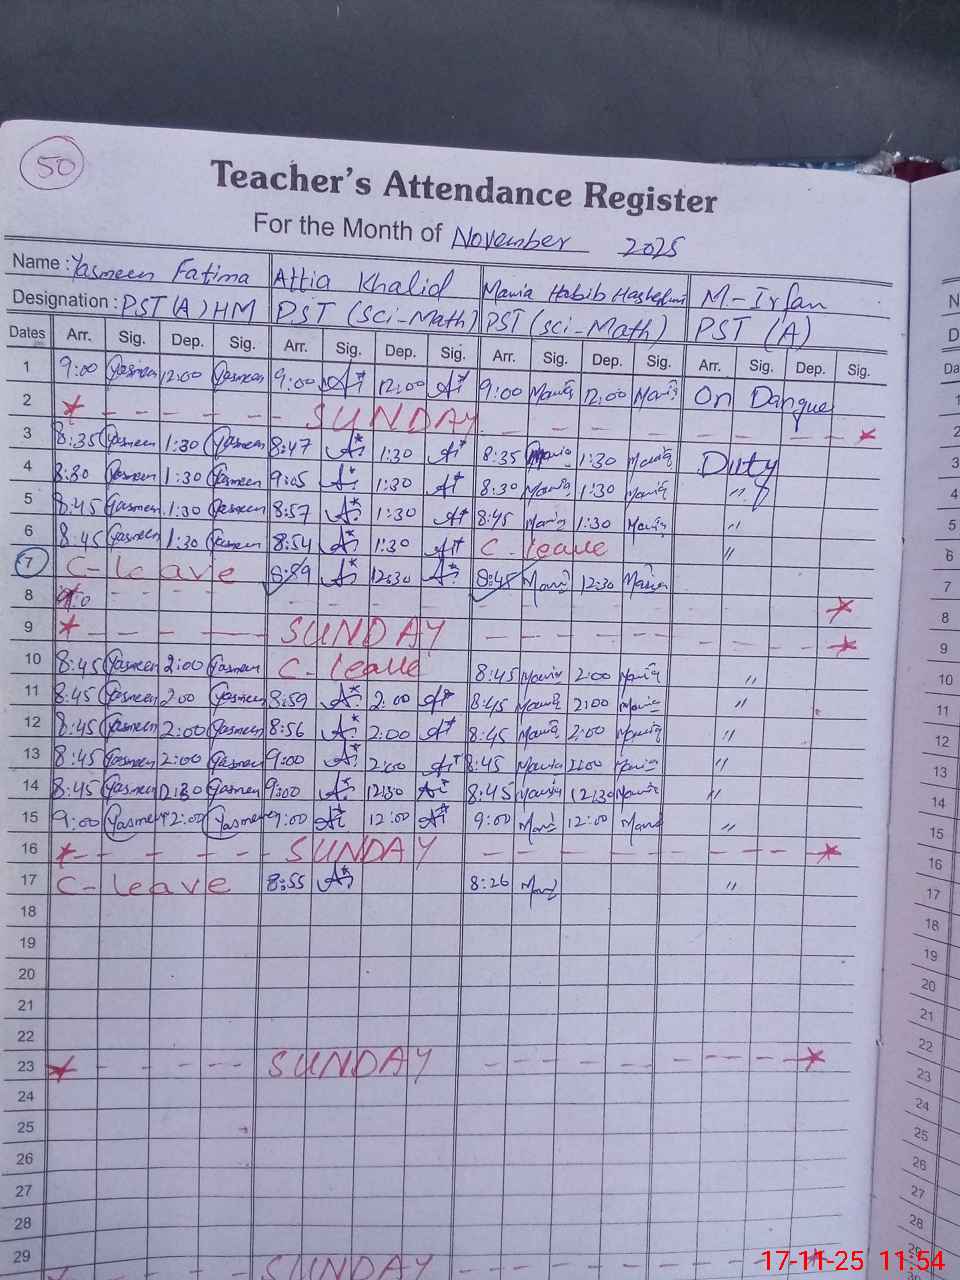 50
Teacher's Attendance Register
For the Month of November 2025
Name : Yasmeen Fatima Attia Khalid Maria Habib Hashmi M-Irfan
Designation : PST (A) HM PST (Sci-Math) PST (Sci-Math) PST (A)
Dates Arr. Sig. Dep. Sig. Arr. Sig. Dep. Sig. Arr. Sig. Dep. Sig. Arr. Sig. Dep. Sig.
1 9:00 Yasmeen 12:00 Yasmeen 9:00 12:00 9:00 Maria 12:00 Maria On Dangue
2 SUNDAY
3 8:35 Yasmeen 1:30 Yasmeen 8:47 1:30 8:35 Maria 1:30 Maria Duty
4 8:30 Yasmeen 1:30 Yasmeen 9:05 1:30 8:30 Maria 1:30 Maria "
5 8:45 Yasmeen 1:30 Yasmeen 8:57 1:30 8:45 Maria 1:30 Maria "
6 8:45 Yasmeen 1:30 Yasmeen 8:54 1:30 C-leave "
7 C-leave 8:59 12:30 8:45 Maria 12:30 Maria
8
9 SUNDAY
10 8:45 Yasmeen 2:00 Yasmeen C-leave 8:45 Maria 2:00 Maria "
11 8:45 Yasmeen 200 Yasmeen 8:59 2:00 8:45 Maria 2:00 Maria "
12 8:45 Yasmeen 2:00 Yasmeen 8:56 2:00 8:45 Maria 2:00 Maria "
13 8:45 Yasmeen 2:00 Yasmeen 9:00 2:00 8:45 Maria 2:00 Maria "
14 8:45 Yasmeen 12:30 Yasmeen 9:00 12:30 8:45 Maria 12:30 Maria "
15 9:00 Yasmeen 12:00 Yasmeen 9:00 12:00 9:00 Maria 12:00 Maria "
16 SUNDAY
17 C-leave 8:55 8:26 Maria "
18
19
20
21
22
23 SUNDAY
24
25
26
27
28
29 SUNDAY
17-11-25 11:54